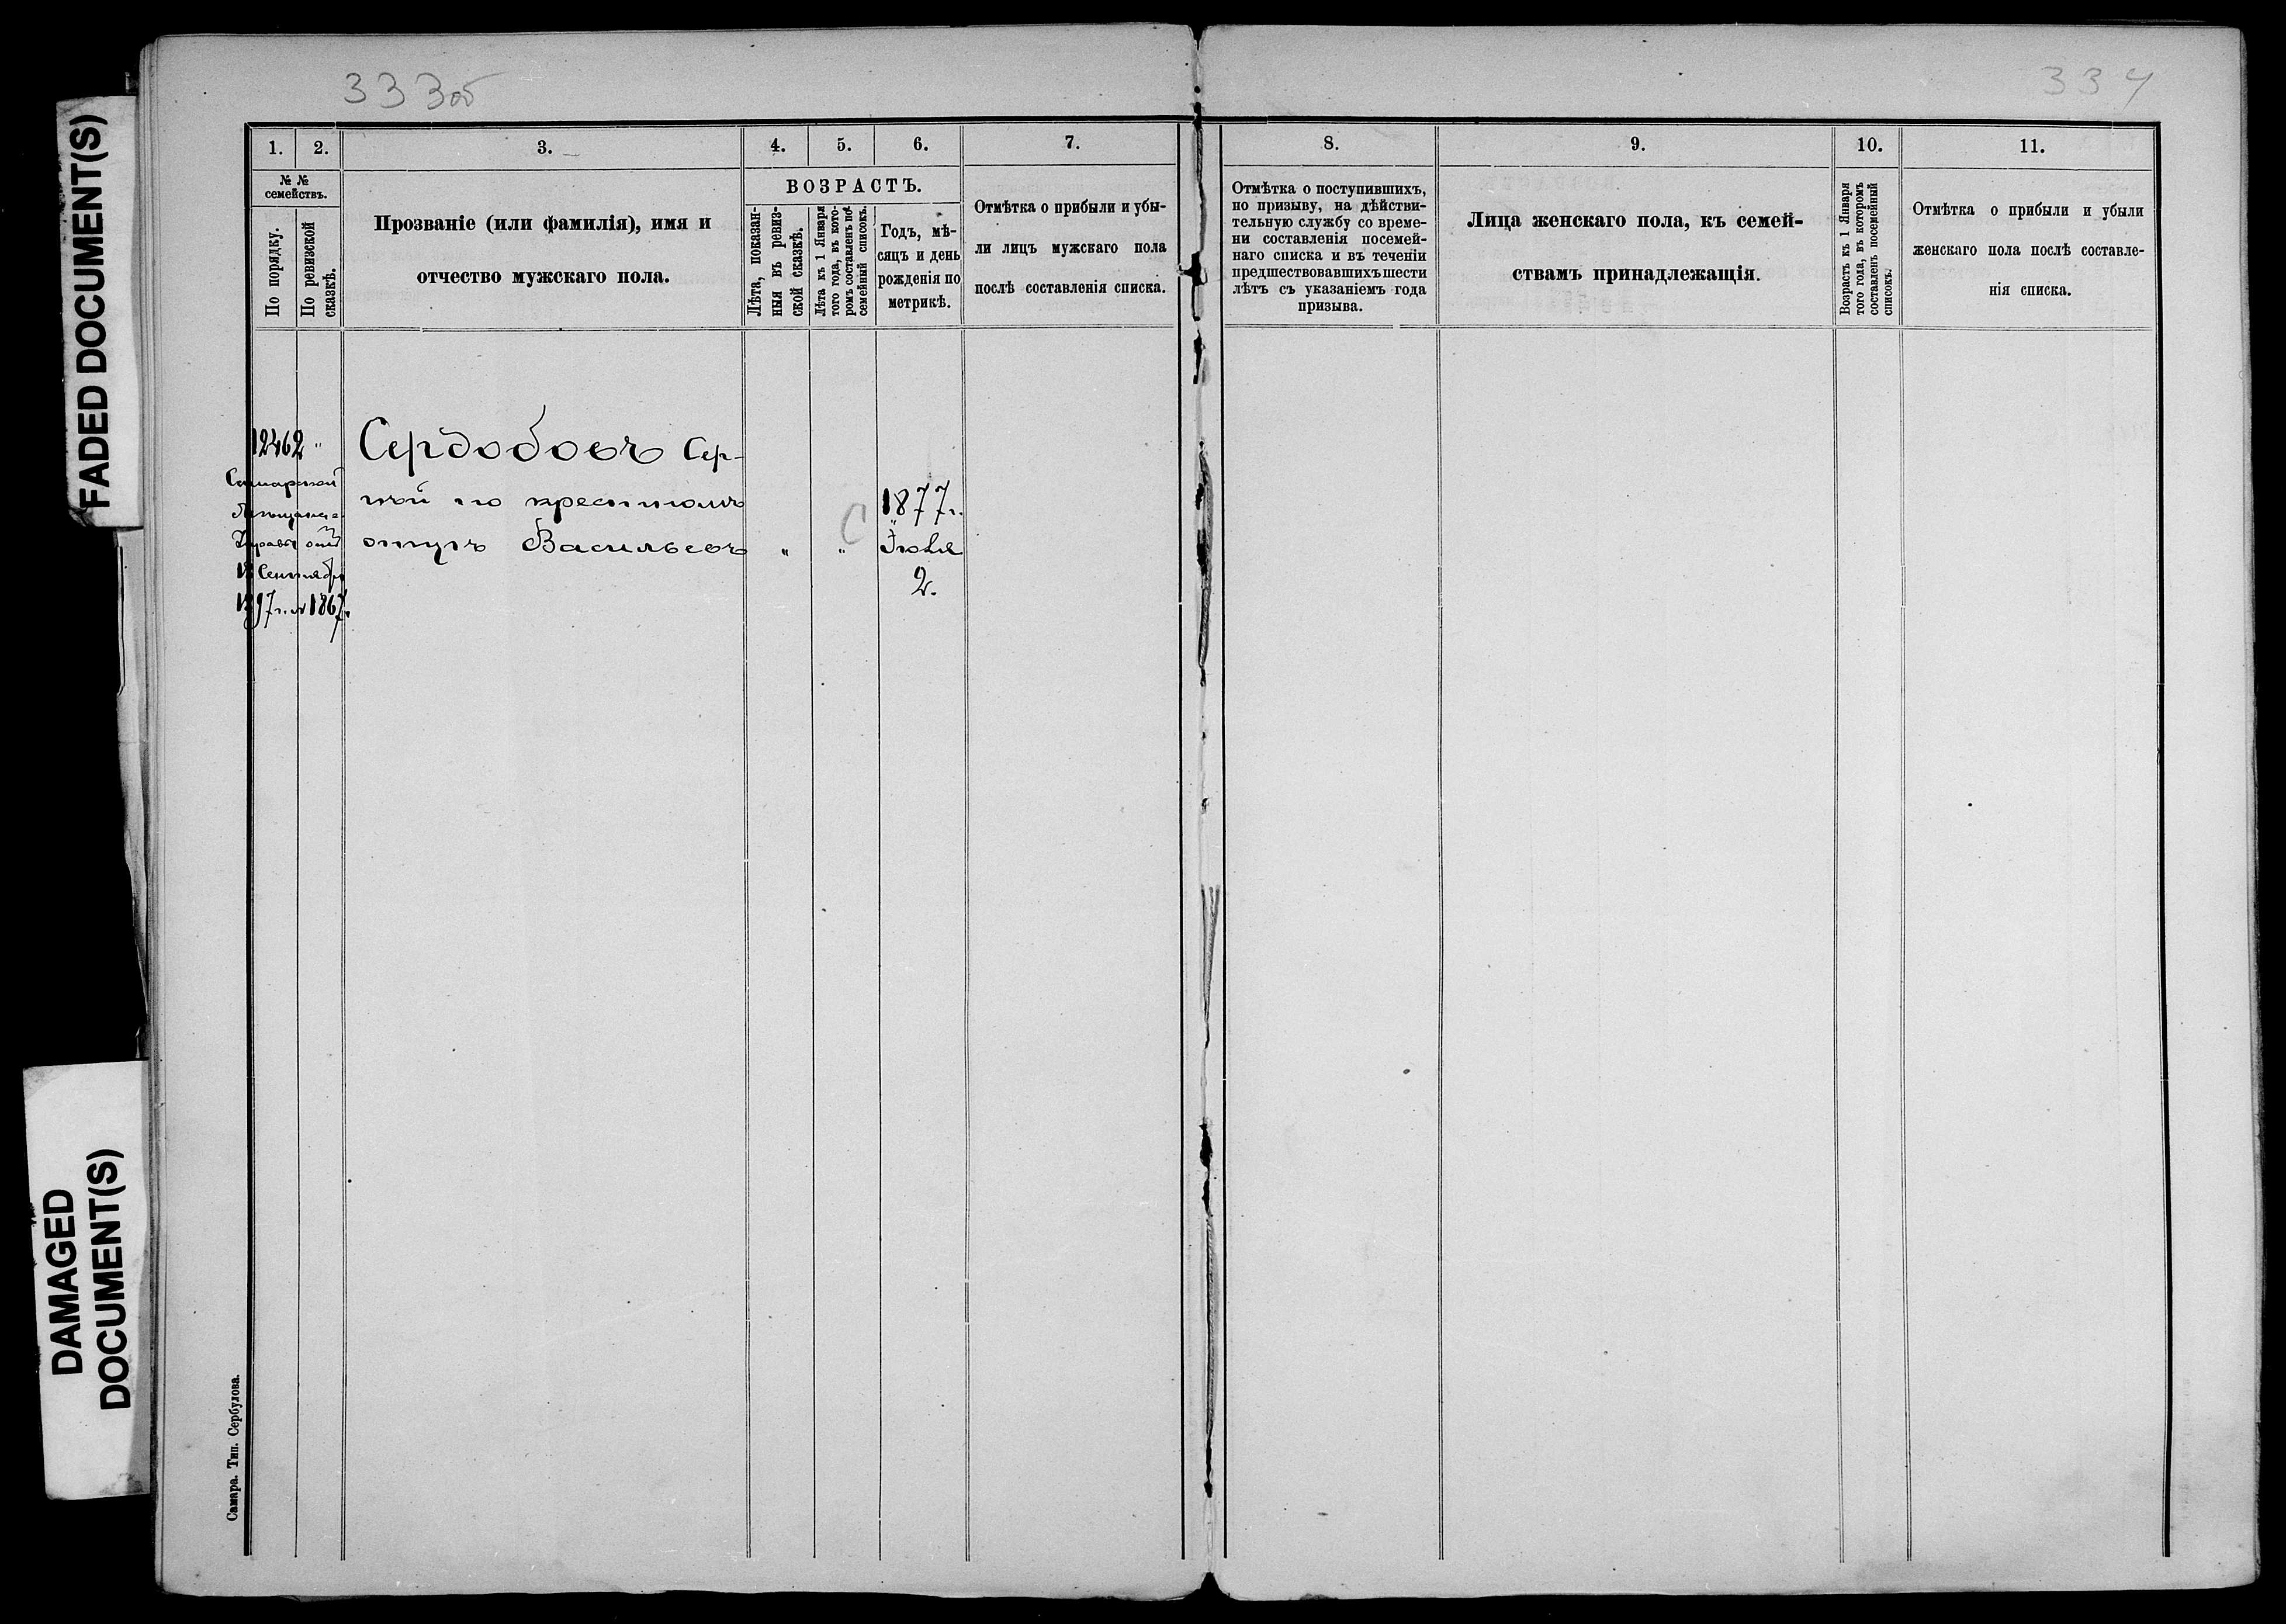 FADED DOCUMENT(S)
DAMAGED
DOCUMENT(S)
333об
334
1. 2. 3. 4. 5. 6. 7.
№ №
семействъ.
По порядку.
По ревизской
сказкѣ.
Прозваніе (или фамилія), имя и
отчество мужскаго пола.
ВОЗРАСТЪ.
Лѣта, показан-
ныя въ ревиз-
ской сказкѣ.
Лѣта къ 1 Января
того года, въ кото-
ромъ составленъ по-
семейный списокъ.
Годъ, мѣ-
сяцъ и день
рожденія по
метрикѣ.
Отмѣтка о прибыли и убы-
ли лицъ мужскаго пола
послѣ составленія списка.
8. 9. 10. 11.
Отмѣтка о поступившихъ,
по призыву, на дѣйстви-
тельную службу со време-
ни составленія посемей-
наго списка и въ теченіи
предшествовавшихъ шести
лѣтъ съ указаніемъ года
призыва.
Лица женскаго пола, къ семей-
ствамъ принадлежащія.
Возрастъ къ 1 Января
того года, въ которомъ
составленъ посемейный
списокъ.
Отмѣтка о прибыли и убыли
женскаго пола послѣ составле-
нія списка.
12462 "
Самарской
Управы отъ
18 Сентября
1897 г. № 1867.
Сердобовъ Сер-
гѣй по крестному
отцу Васильевъ " " С
1877 г.
Іюля
2.
Самара. Тип. Сербулова.